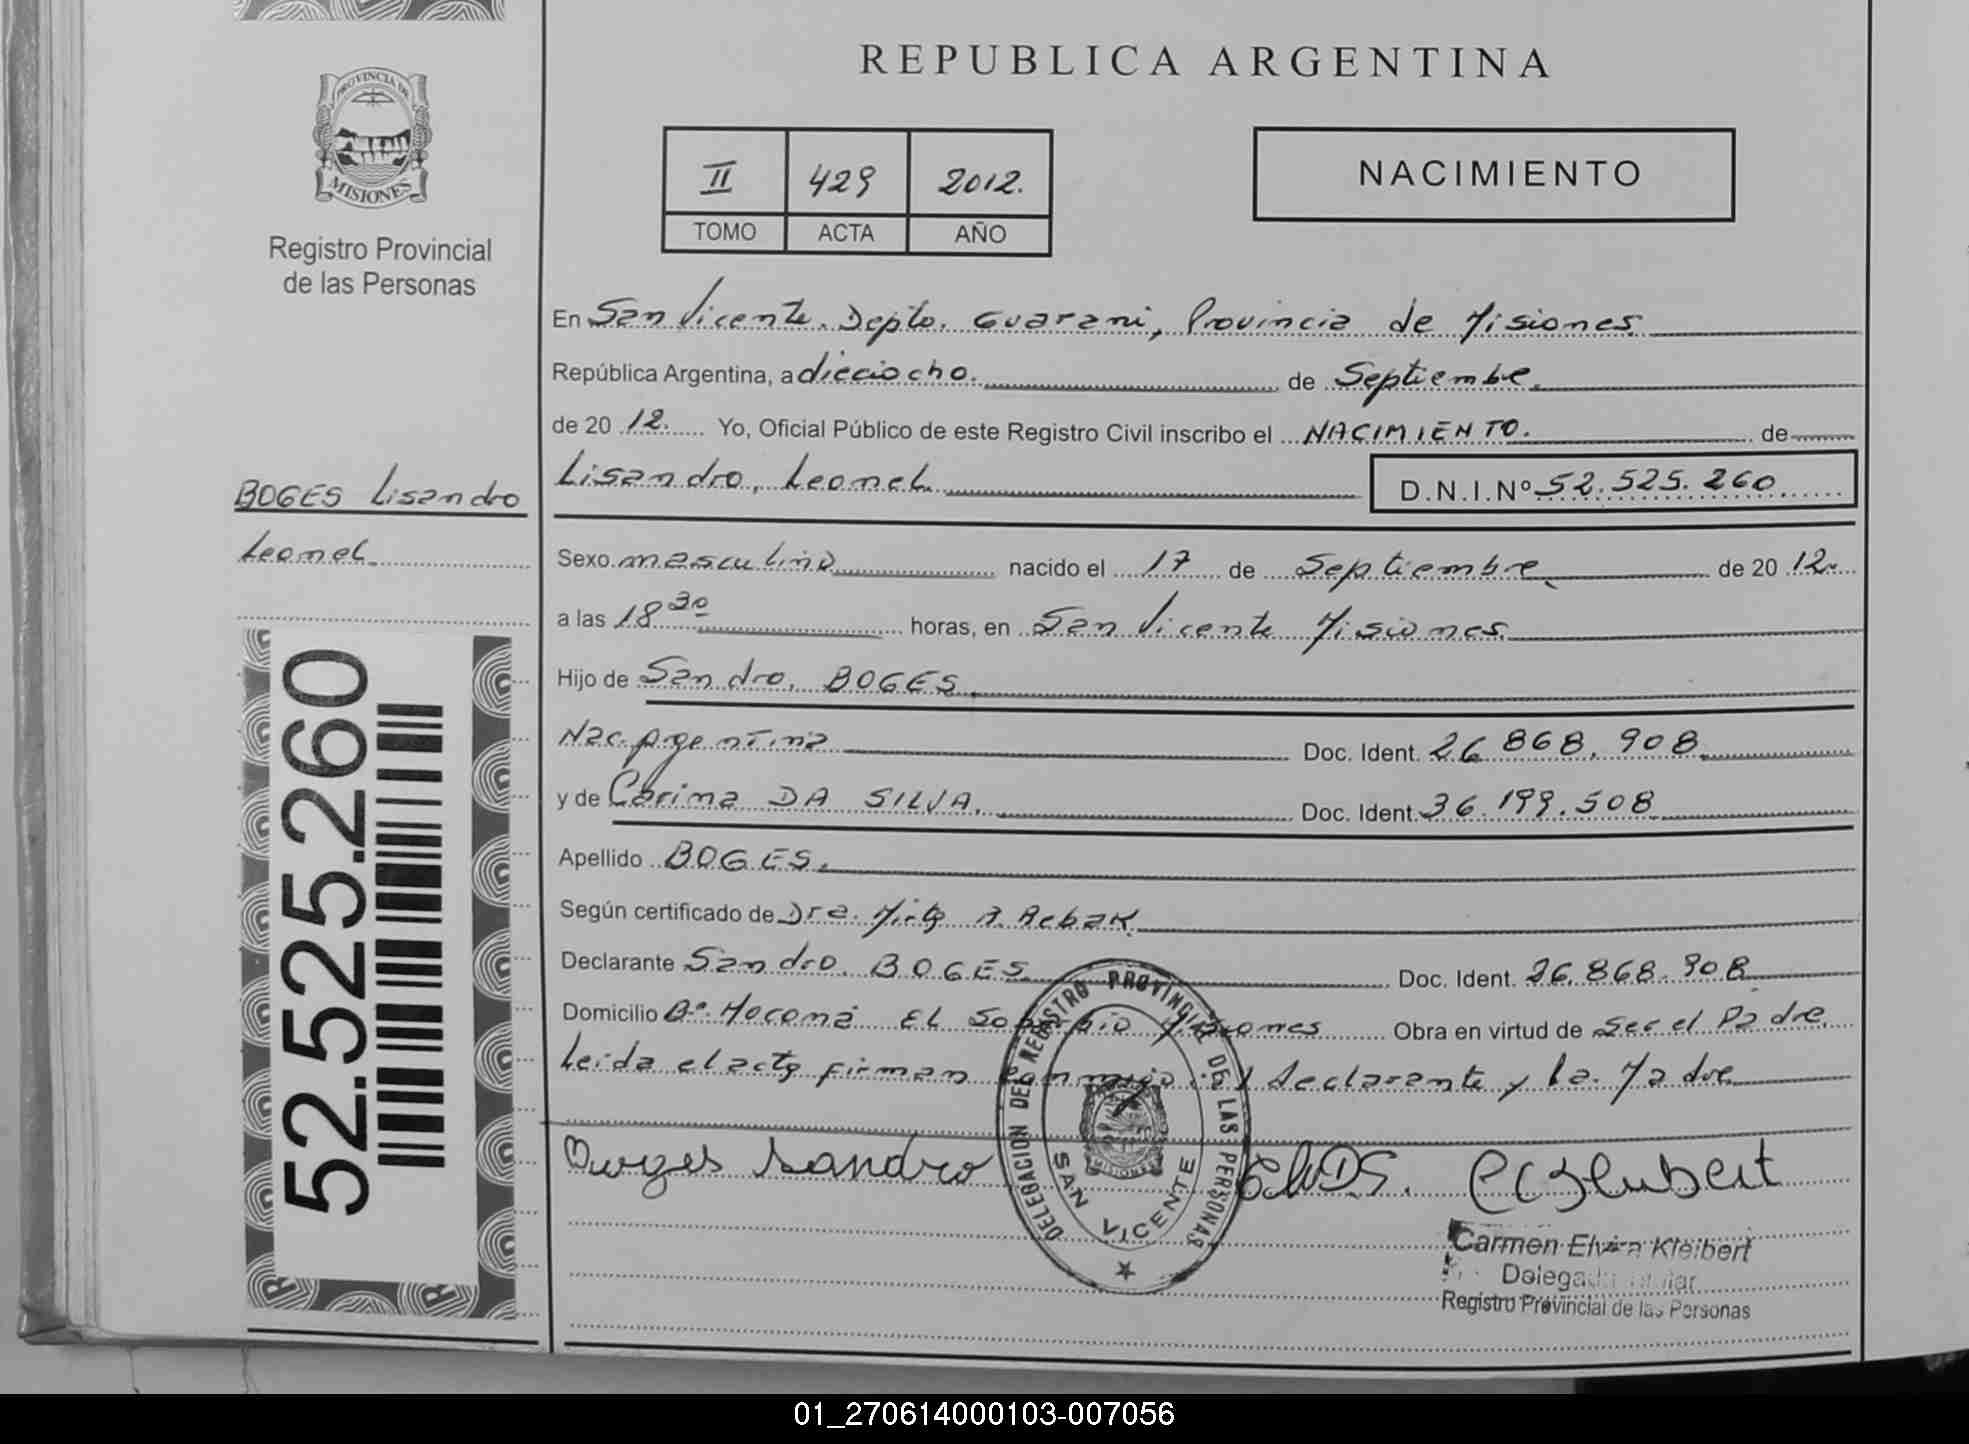 REPUBLICA ARGENTINA
PROVINCIA DE
MISIONES
Registro Provincial
de las Personas
II 429 2012.
TOMO ACTA AÑO
NACIMIENTO
En San Vicente. Depto. Guarani, Provincia de Misiones.
República Argentina, a dieciocho. de Septiembre.
de 20 12. Yo, Oficial Público de este Registro Civil inscribo el NACIMIENTO. de
Lisandro, Leonel. D.N.I.Nº 52.525.260
BOGES Lisandro
Leonel.
Sexo masculino nacido el 17 de Septiembre de 20 12.
a las 18 30 horas, en San Vicente Misiones.
Hijo de Sandro. BOGES.
Nac. Argentina Doc. Ident. 26 868.908
y de Carina DA SILVA. Doc. Ident. 36.199.508
Apellido BOGES.
Según certificado de Dra. Mirta A. Rebak.
Declarante Sandro BOGES. Doc. Ident. 26.868.908
Domicilio Bº. Mocona EL Soberbio Misiones Obra en virtud de ser el Padre.
Leida el acta firman conmigo el declarante y la Madre
52.525.260
DELEGACION DEL REGISTRO PROVINCIAL DE LAS PERSONAS
MISIONES
SAN VICENTE
Borges Sandro
Carmen Elvira Kleibert
Delegada Titular
Registro Provincial de las Personas
01_270614000103-007056